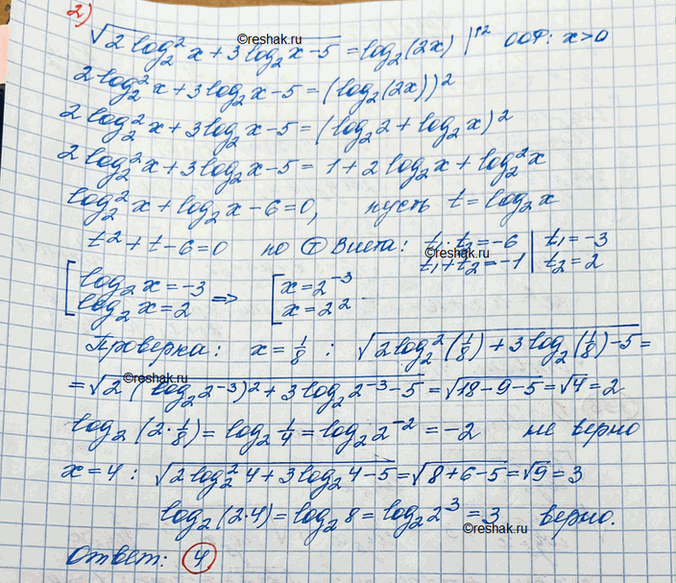 2)
©reshak.ru
√(2 log₂² x + 3 log₂ x - 5) = log₂ (2x) |↑2 ООФ: x > 0
2 log₂² x + 3 log₂ x - 5 = (log₂ (2x))²
2 log₂² x + 3 log₂ x - 5 = (log₂ 2 + log₂ x)²
2 log₂² x + 3 log₂ x - 5 = 1 + 2 log₂ x + log₂² x
log₂² x + log₂ x - 6 = 0, пусть t = log₂ x
©reshak.ru
t² + t - 6 = 0 по Т Виета: t₁·t₂ = -6 | t₁ = -3
t₁ + t₂ = -1 | t₂ = 2
[ log₂ x = -3 => [ x = 2⁻³
log₂ x = 2 x = 2²
Проверка: x = 1/8 : √(2 log₂² (1/8) + 3 log₂ (1/8) - 5) =
©reshak.ru
= √(2 (log₂ 2⁻³)² + 3 log₂ 2⁻³ - 5) = √(18 - 9 - 5) = √4 = 2
log₂ (2·1/8) = log₂ 1/4 = log₂ 2⁻² = -2 не верно
x = 4 : √(2 log₂² 4 + 3 log₂ 4 - 5) = √(8 + 6 - 5) = √9 = 3
log₂ (2·4) = log₂ 8 = log₂ 2³ = 3 верно.
©reshak.ru
Ответ: 4